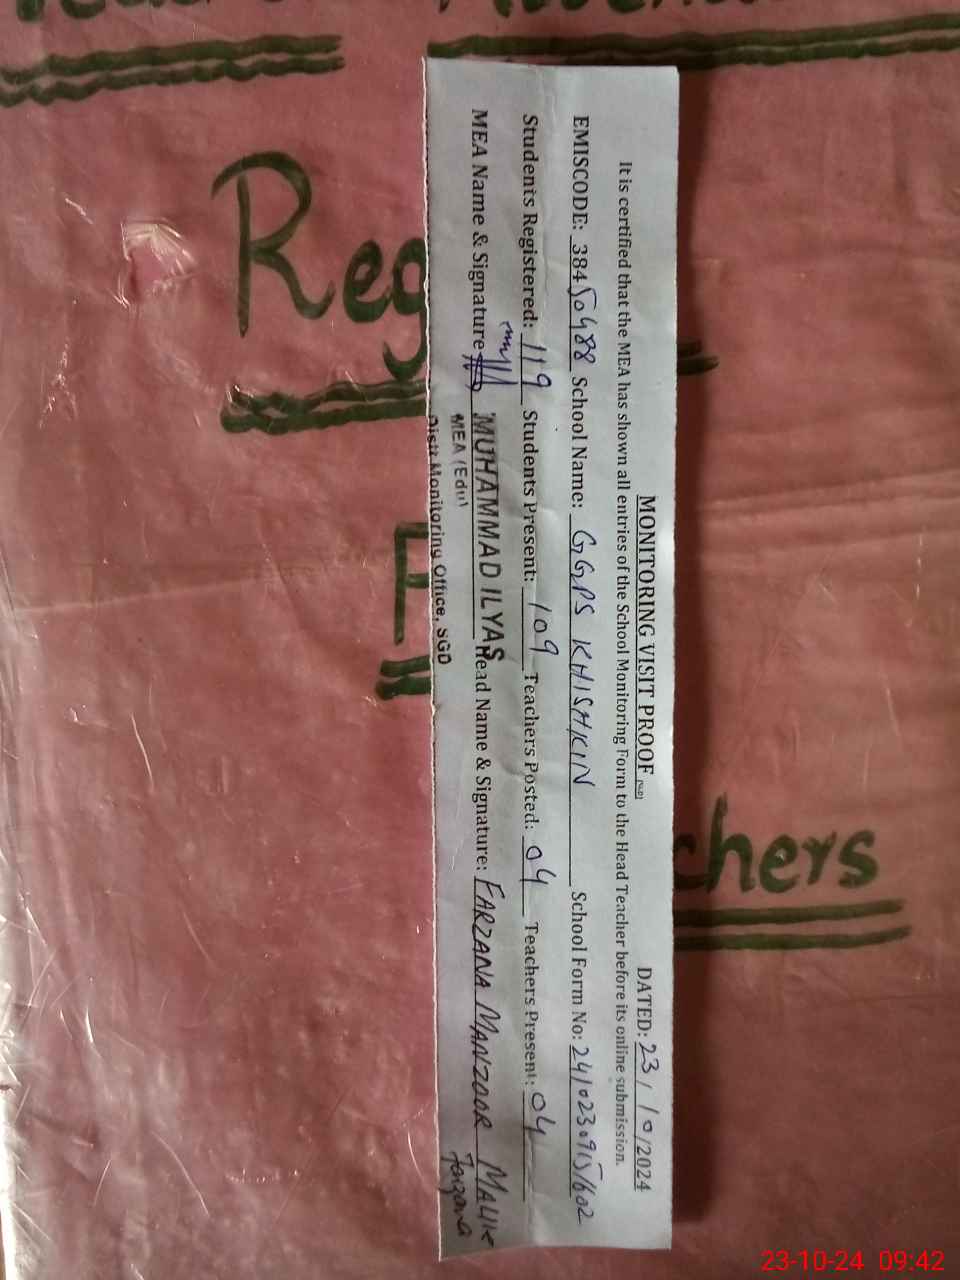 MONITORING VISIT PROOF
DATED: 23/10/2024
It is certified that the MEA has shown all entries of the School Monitoring Form to the Head Teacher before its online submission.
EMISCODE: 38450488 School Name: GGPS KHISHKIN School Form No: 24102309151602
Students Registered: 119 Students Present: 109 Teachers Posted: 04 Teachers Present: 04
MEA Name & Signature MUHAMMAD ILYAS Head Name & Signature: FARZANA MANZOOR MALIK
MEA (Edu) Farzana
Distt Monitoring Office, SGD
Reg
chers
23-10-24 09:42